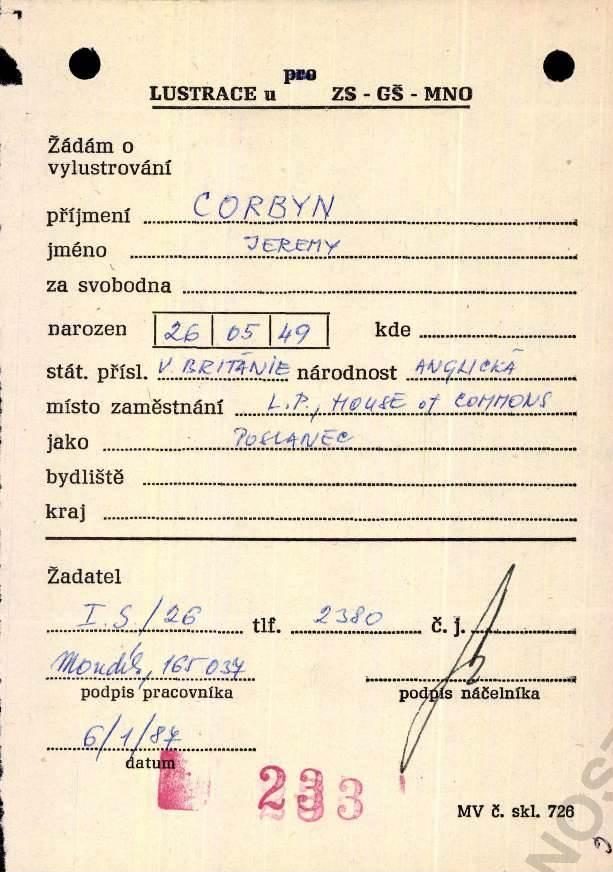 pro
LUSTRACE u ZS - GŠ - MNO
Žádám o
vylustrování
příjmení CORBYN
jméno JEREMY
za svobodna
narozen 26 05 49 kde
stát. přísl. V. BRITÁNIE národnost ANGLICKÁ
místo zaměstnání L.P., HOUSE of COMMONS
jako POSLANEC
bydliště
kraj
Žadatel
I. S./26 tlf. 2380 č. j.
165037
podpis pracovníka podpis náčelníka
6/1/87
datum
233
MV č. skl. 726